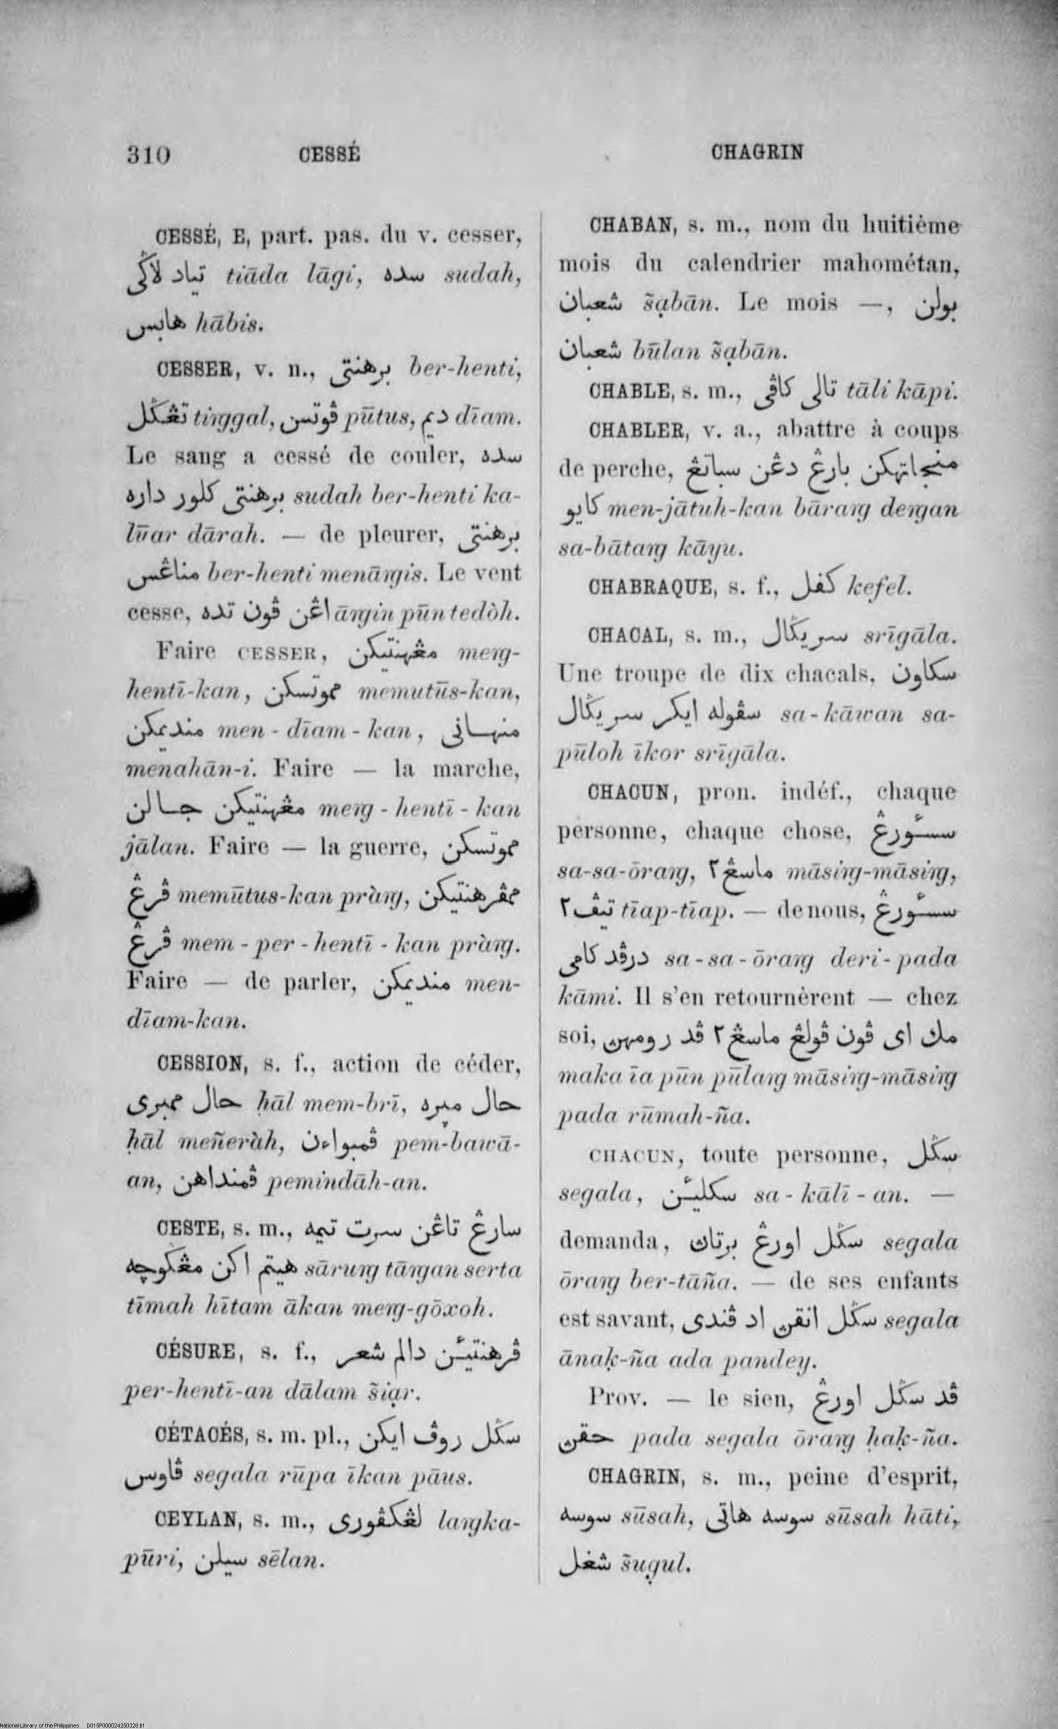 310 CESSÉ CHAGRIN
CESSÉ, E, part. pas. du v. cesser,
تياد لاݢي tiāda lāgi, سده sudah,
هابس hābis.
CESSER, v. n., برهنتي ber-henti,
تڠݢل tiŋggal, ڤوتس pūtus, ديم dīam.
Le sang a cessé de couler, سده
برهنتي كلور داره sudah ber-henti ka-
lūar dārah. — de pleurer, برهنتي
مناڠس ber-henti menāŋis. Le vent
cesse, اڠن ڤون تده āŋin pūn tedòh.
Faire CESSER, مڠهنتيكن meŋ-
hentī-kan, مموتسكن memutūs-kan,
منديمكن men-dīam-kan, منهاني
menahān-i. Faire — la marche,
مڠهنتيكن جالن meŋ-hentī-kan
jālan. Faire — la guerre, مموتسكن
ڤرڠ memūtus-kan pràŋ, ممڤرهنتيكن
ڤرڠ mem-per-hentī-kan pràŋ.
Faire — de parler, منديمكن men-
dīam-kan.
CESSION, s. f., action de céder,
حال ممبري ḥāl mem-brī, حال ميره
ḥāl meñeràh, ڤمبواءن pem-bawā-
an, ڤمنداهن pemindāh-an.
CESTE, s. m., سارڠ تاڠن سرت تيمه
هيتم اكن مڠݢوچه sāruŋ tāŋan serta
tīmah hītam ākan meŋ-gōxoh.
CÉSURE, s. f., ڤرهنتيئن دالم شعر
per-hentī-an dālam s̃iạr.
CÉTACÉS, s. m. pl., سݢل روڤ ايكن
ڤاوس segala rūpa īkan pāus.
CEYLAN, s. m., لڠكڤوري laŋka-
pūri, سيلن sēlan.
CHABAN, s. m., nom du huitième
mois du calendrier mahométan,
شعبان s̃ạbān. Le mois —, بولن
شعبان būlan s̃ạbān.
CHABLE, s. m., تالي كاڤي tāli kāpi.
CHABLER, v. a., abattre à coups
de perche, منجاتهكن بارڠ دڠن سباتڠ
كايو men-jātuh-kan bāraŋ deŋan
sa-bātaŋ kāyu.
CHABRAQUE, s. f., كفل kefel.
CHACAL, s. m., سريݢال srīgāla.
Une troupe de dix chacals, سكاون
سڤوله ايكر سريݢال sa-kāwan sa-
pūloh īkor srīgāla.
CHACUN, pron. indéf., chaque
personne, chaque chose, سسـئورڠ
sa-sa-ōraŋ, ماسڠ٢ māsiŋ-māsiŋ,
تيڤ٢ tīap-tīap. — de nous, سسـئورڠ
درڤد كامي sa-sa-ōraŋ deri-pada
kāmi. Il s'en retournèrent — chez
soi, مك اي ڤون ڤولڠ ماسڠ٢ ڤد رومهن
maka īa pūn pūlaŋ māsiŋ-māsiŋ
pada rūmah-ña.
CHACUN, toute personne, سݢل
segala, سكليـئن sa-kālī-an. —
demanda, سݢل اورڠ برتاڽ segala
ōraŋ ber-tāña. — de ses enfants
est savant, سݢل انقڽ اد ڤندي segala
ānaḳ-ña ada pandey.
Prov. — le sien, ڤد سݢل اورڠ
حقڽ pada segala ōraŋ ḥaḳ-ña.
CHAGRIN, s. m., peine d'esprit,
سوسه sūsah, سوسه هاتي sūsah hāti,
شغل s̃ug̣ul.
National Library of the Philippines